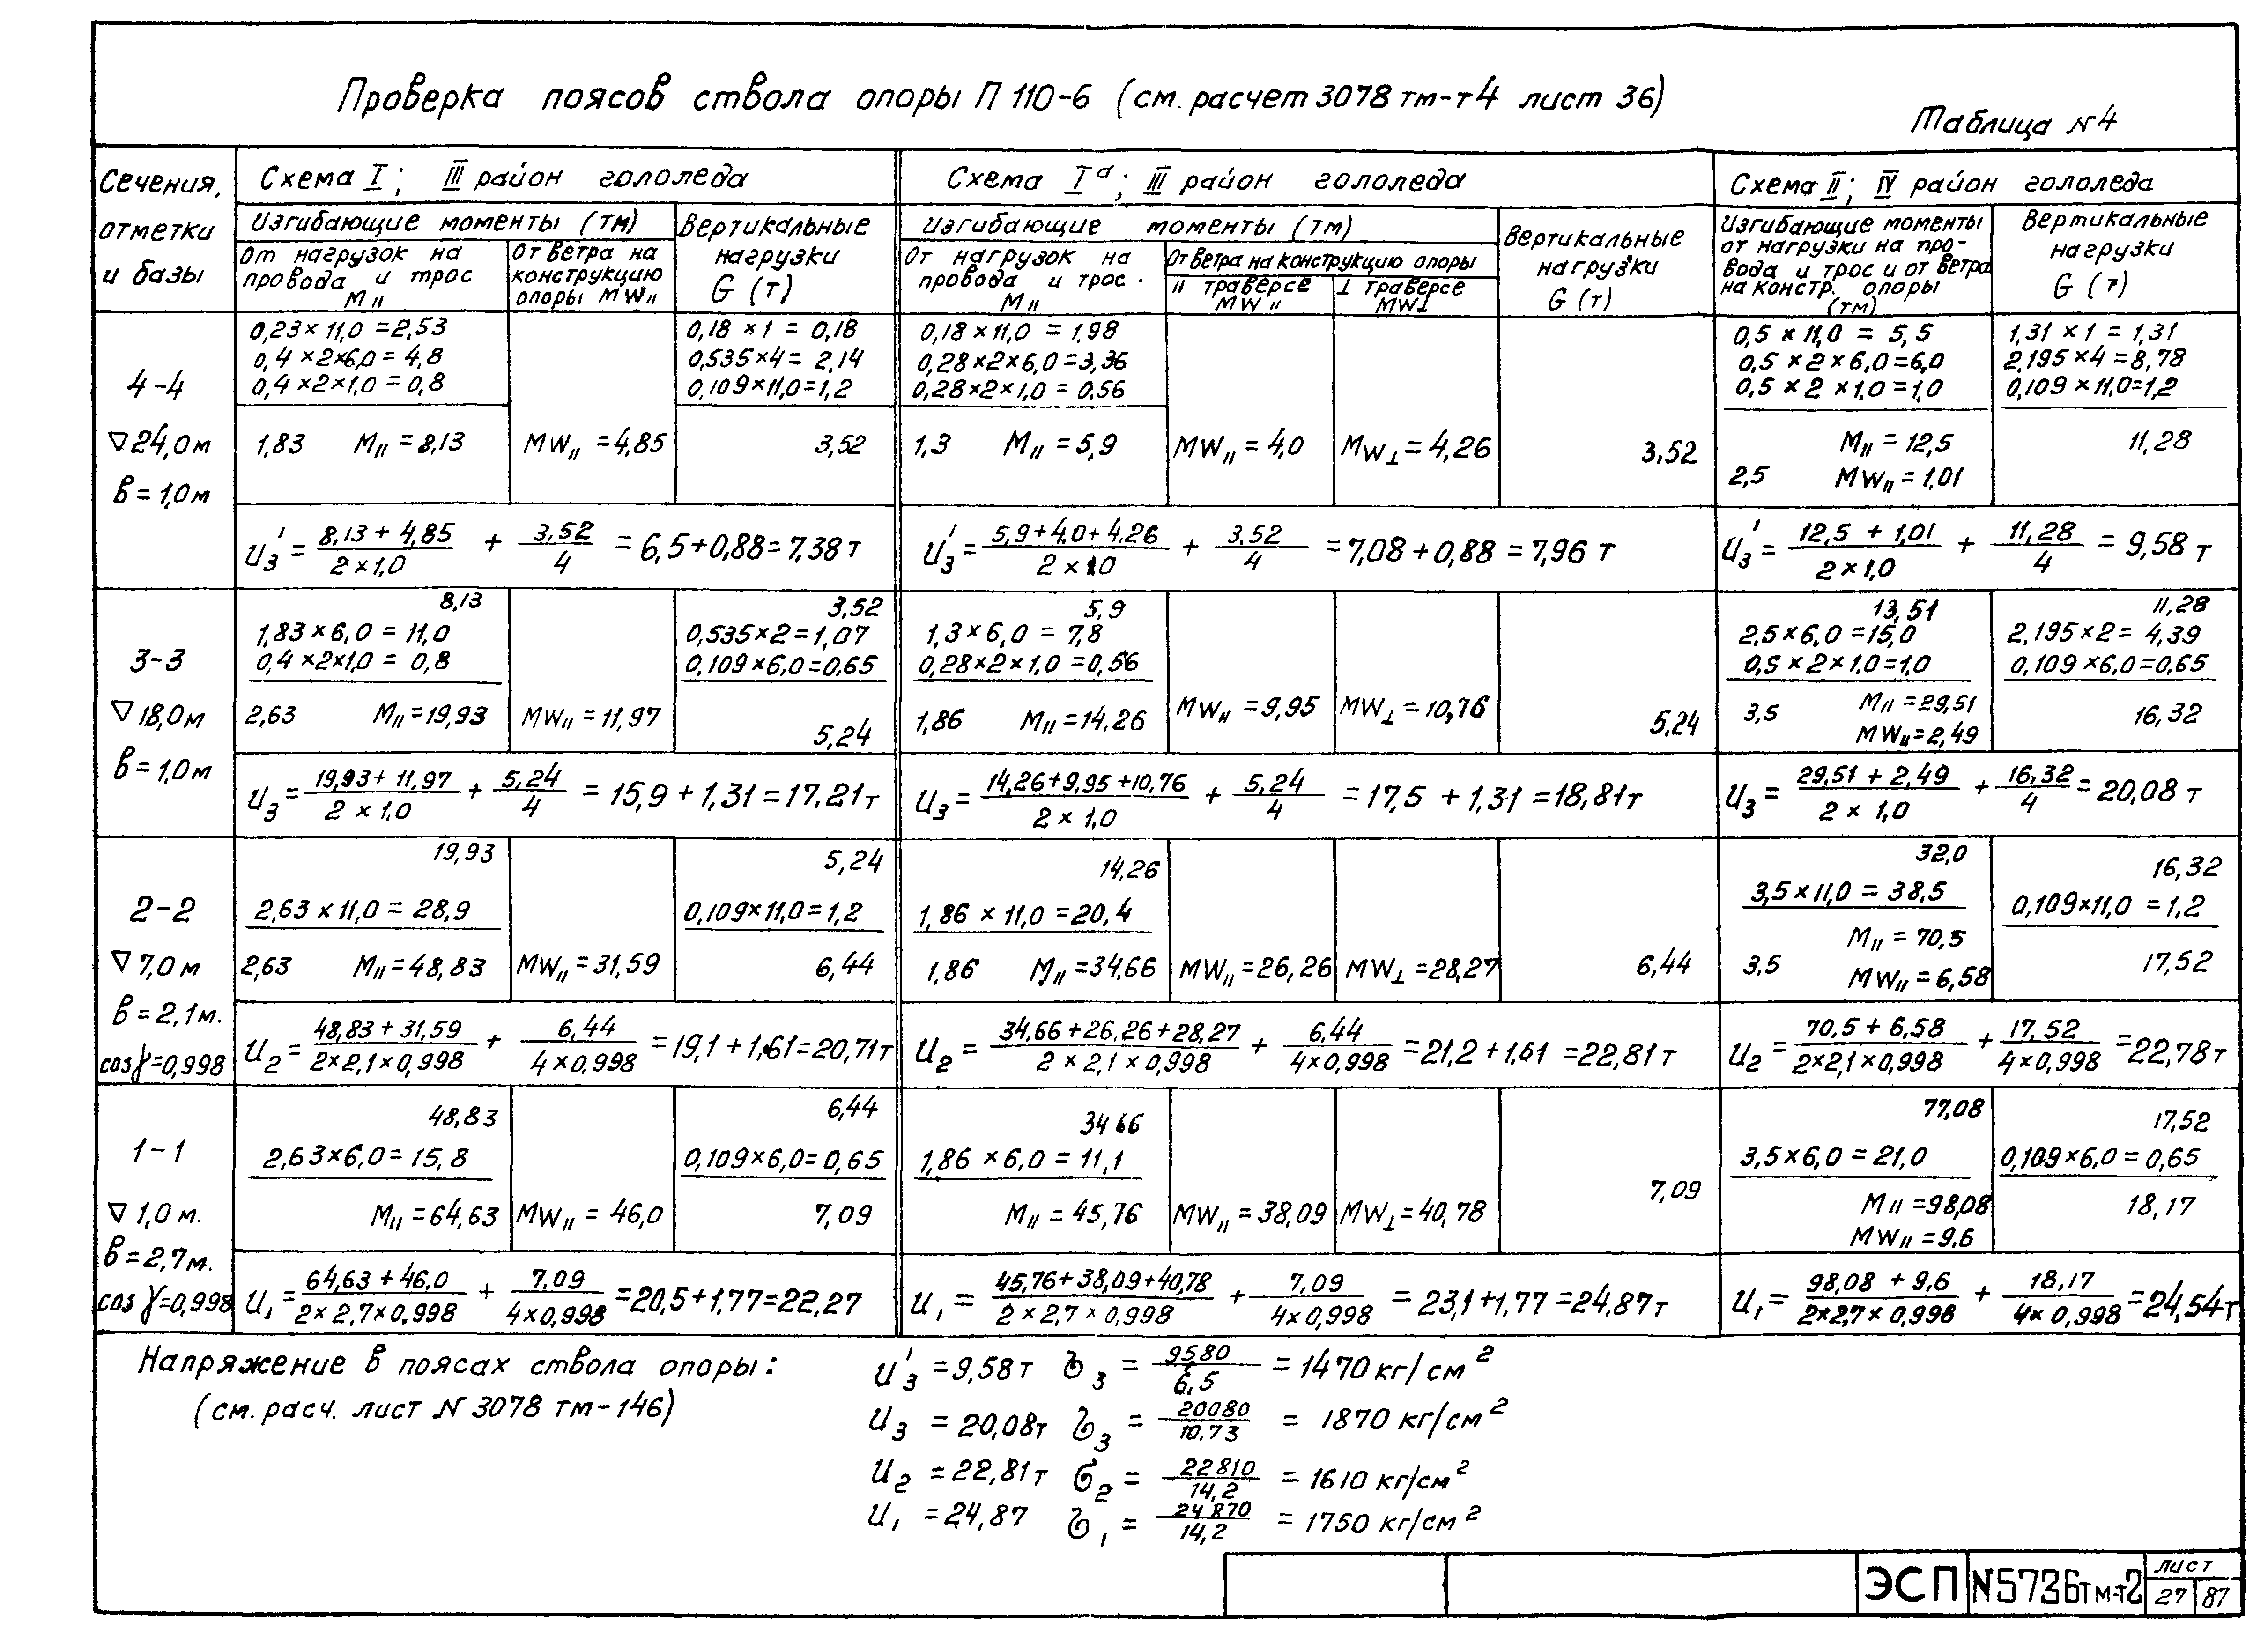 Проверка поясов ствола опоры П 110-6 (см. расчет 3078 тм-т4 лист 36)
Таблица №4
Сечения, отметки и базы
Схема I; III район гололеда
Изгибающие моменты (тм)
От нагрузок на провода и трос M॥
От ветра на конструкцию опоры MW॥
Вертикальные нагрузки G (т)
Схема Iа; III район гололеда
Изгибающие моменты (тм)
От нагрузок на провода и трос. M॥
От ветра на конструкцию опоры
॥ траверсе MW॥
⊥ траверсе MW⊥
Вертикальные нагрузки G (т)
Схема II; IV район гололеда
Изгибающие моменты от нагрузки на про-
вода и трос и от ветра на констр. опоры (тм)
Вертикальные нагрузки G (т)
4-4
▽24,0м
в=1,0м
0,23×11,0=2,53
0,4×2×6,0=4,8
0,4×2×1,0=0,8
1,83 M॥=8,13
MW॥=4,85
0,18×1=0,18
0,535×4=2,14
0,109×11,0=1,2
3,52
0,18×11,0=1,98
0,28×2×6,0=3,36
0,28×2×1,0=0,56
1,3 M॥=5,9
MW॥=4,0
MW⊥=4,26
3,52
0,5×11,0=5,5
0,5×2×6,0=6,0
0,5×2×1,0=1,0
M॥=12,5
2,5 MW॥=1,01
1,31×1=1,31
2,195×4=8,78
0,109×11,0=1,2
11,28
U₃'=(8,13+4,85)/(2×1,0) + 3,52/4 =6,5+0,88=7,38т
U₃'=(5,9+4,0+4,26)/(2×1,0) + 3,52/4 =7,08+0,88=7,96 т
U₃'=(12,5+1,01)/(2×1,0) + 11,28/4 =9,58 т
3-3
▽18,0м
в=1,0м
8,13
1,83×6,0=11,0
0,4×2×1,0=0,8
2,63 M॥=19,93
MW॥=11,97
3,52
0,535×2=1,07
0,109×6,0=0,65
5,24
5,9
1,3×6,0=7,8
0,28×2×1,0=0,56
1,86 M॥=14,26
MW॥=9,95
MW⊥=10,76
5,24
13,51
2,5×6,0=15,0
0,5×2×1,0=1,0
M॥=29,51
3,5 MW॥=2,49
11,28
2,195×2=4,39
0,109×6,0=0,65
16,32
U₃=(19,93+11,97)/(2×1,0) + 5,24/4 =15,9+1,31=17,21т
U₃=(14,26+9,95+10,76)/(2×1,0) + 5,24/4 =17,5+1,31=18,81т
U₃=(29,51+2,49)/(2×1,0) + 16,32/4 =20,08 т
2-2
▽7,0м
в=2,1м.
cosγ=0,998
19,93
2,63×11,0=28,9
2,63 M॥=48,83
MW॥=31,59
5,24
0,109×11,0=1,2
6,44
14,26
1,86×11,0=20,4
1,86 M॥=34,66
MW॥=26,26
MW⊥=28,27
6,44
32,0
3,5×11,0=38,5
M॥=70,5
3,5 MW॥=6,58
16,32
0,109×11,0=1,2
17,52
U₂=(48,83+31,59)/(2×2,1×0,998) + 6,44/(4×0,998) =19,1+1,61=20,71т
U₂=(34,66+26,26+28,27)/(2×2,1×0,998) + 6,44/(4×0,998) =21,2+1,61=22,81т
U₂=(70,5+6,58)/(2×2,1×0,998) + 17,52/(4×0,998) =22,78т
1-1
▽1,0м.
в=2,7м.
cosγ=0,998
48,83
2,63×6,0=15,8
M॥=64,63
MW॥=46,0
6,44
0,109×6,0=0,65
7,09
34 66
1,86×6,0=11,1
M॥=45,76
MW॥=38,09
MW⊥=40,78
7,09
77,08
3,5×6,0=21,0
M॥=98,08
MW॥=9,6
17,52
0,109×6,0=0,65
18,17
U₁=(64,63+46,0)/(2×2,7×0,998) + 7,09/(4×0,998) =20,5+1,77=22,27
U₁=(45,76+38,09+40,78)/(2×2,7×0,998) + 7,09/(4×0,998) =23,1+1,77=24,87т
U₁=(98,08+9,6)/(2×2,7×0,998) + 18,17/(4×0,998) =24,54т
Напряжение в поясах ствола опоры:
(см. расч. лист N 3078 тм-146)
U₃'=9,58т σ₃=9580/6,5=1470 кг/см²
U₃=20,08т σ₃=20080/10,73=1870 кг/см²
U₂=22,81т σ₂=22810/14,2=1610 кг/см²
U₁=24,87 σ₁=24870/14,2=1750 кг/см²
ЭСП
N5736тм-т2
лист
27 87